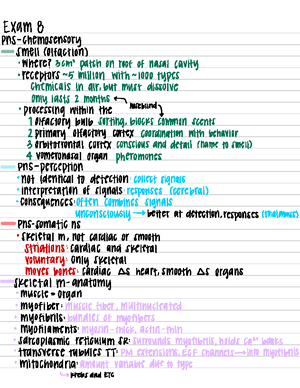 Exam 8
PNS-chemosensory
smell (olfaction)
• Where? 3cm² patch on roof of nasal cavity
• receptors ~5 million with ~1000 types
chemicals in air, but must dissolve
Only lasts 2 months noseblind
• Processing within the
1 olfactory bulb sorting, blocks common scents
2 primary olfactory cortex coordination with behavior
3 orbitofrontal cortex conscious and detail (name to smell)
4 vomeronasal organ pheromones
PNS-perception
• not identical to detection: collect signals
• interpretation of signals: responses (cerebral)
• consequences: often combines signals
unconsciously → better at detection, responses (thalamus)
PNS-somatic ns
• skeletal m, not cardiac or smooth
striations: cardiac and skeletal
voluntary: only skeletal
moves bones: cardiac Δs heart, smooth Δs organs
skeletal m-anatomy
• muscle = organ
• myofiber: muscle fiber, multinucleated
• myofibrils: bundles of myofibers
• myofilaments: myosin-thick, actin-thin
• sarcoplasmic reticulum SR: surrounds myofibrils, holds Ca²⁺
• transverse tubules TT: PM extensions, ECF channels → into myofibrils
• mitochondria: amount variable due to type
↳ Krebs and ETC